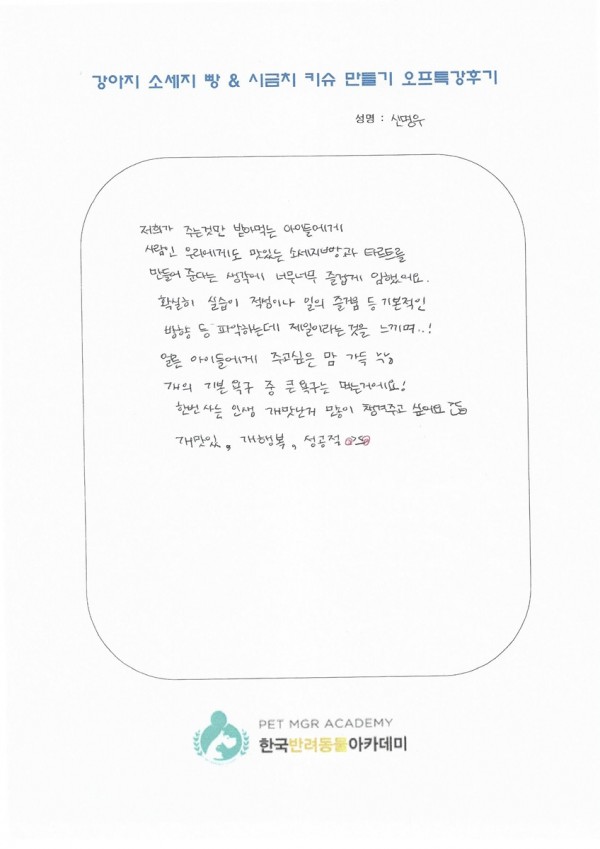 강아지 소세지 빵 & 시금치 키슈 만들기 오프특강후기
성명 : 신명우
저희가 주는것만 받아먹는 아이들에게
사람인 우리에게도 맛있는 소세지빵과 타르트를
만들어 준다는 생각에 너무너무 즐겁게 임했어요.
확실히 실습이 적성이나 일의 즐거움 등 기본적인
방향 등 파악하는데 제일이라는것을 느끼며..!
얼른 아이들에게 주고싶은 맘 가득 ㅎㅎ
개의 기본 욕구 중 큰 욕구는 먹는거에요!
한번 사는 인생 개맛난거 많이 챙겨주고 싶어요
개맛있, 개행복, 성공적
PET MGR ACADEMY
한국반려동물아카데미